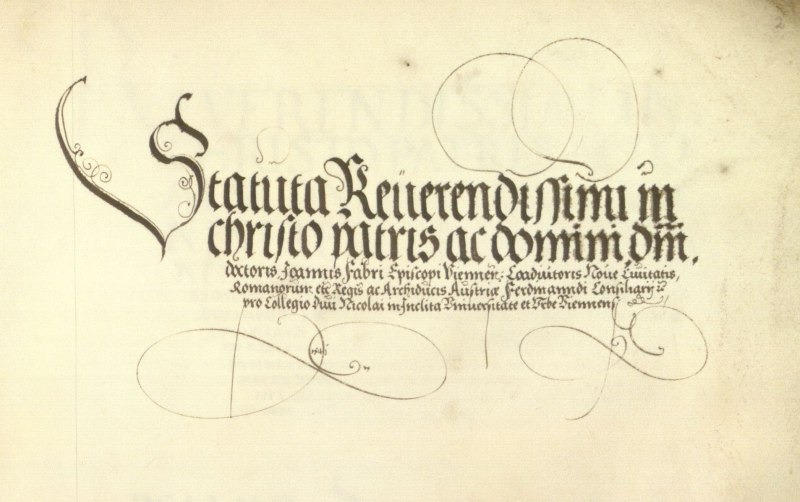 Statuta Reuerendissimi in
christo patris ac domini, dni.
doctoris Joannis Fabri Episcopi Viennen: Coadiutoris Noue Ciuitatis,
Romanorum etc Regis ac Archiducis Austriæ Ferdinandi Consiliarij
pro Collegio diui Nicolai in Inclita Vniuersitate et Vrbe Viennens